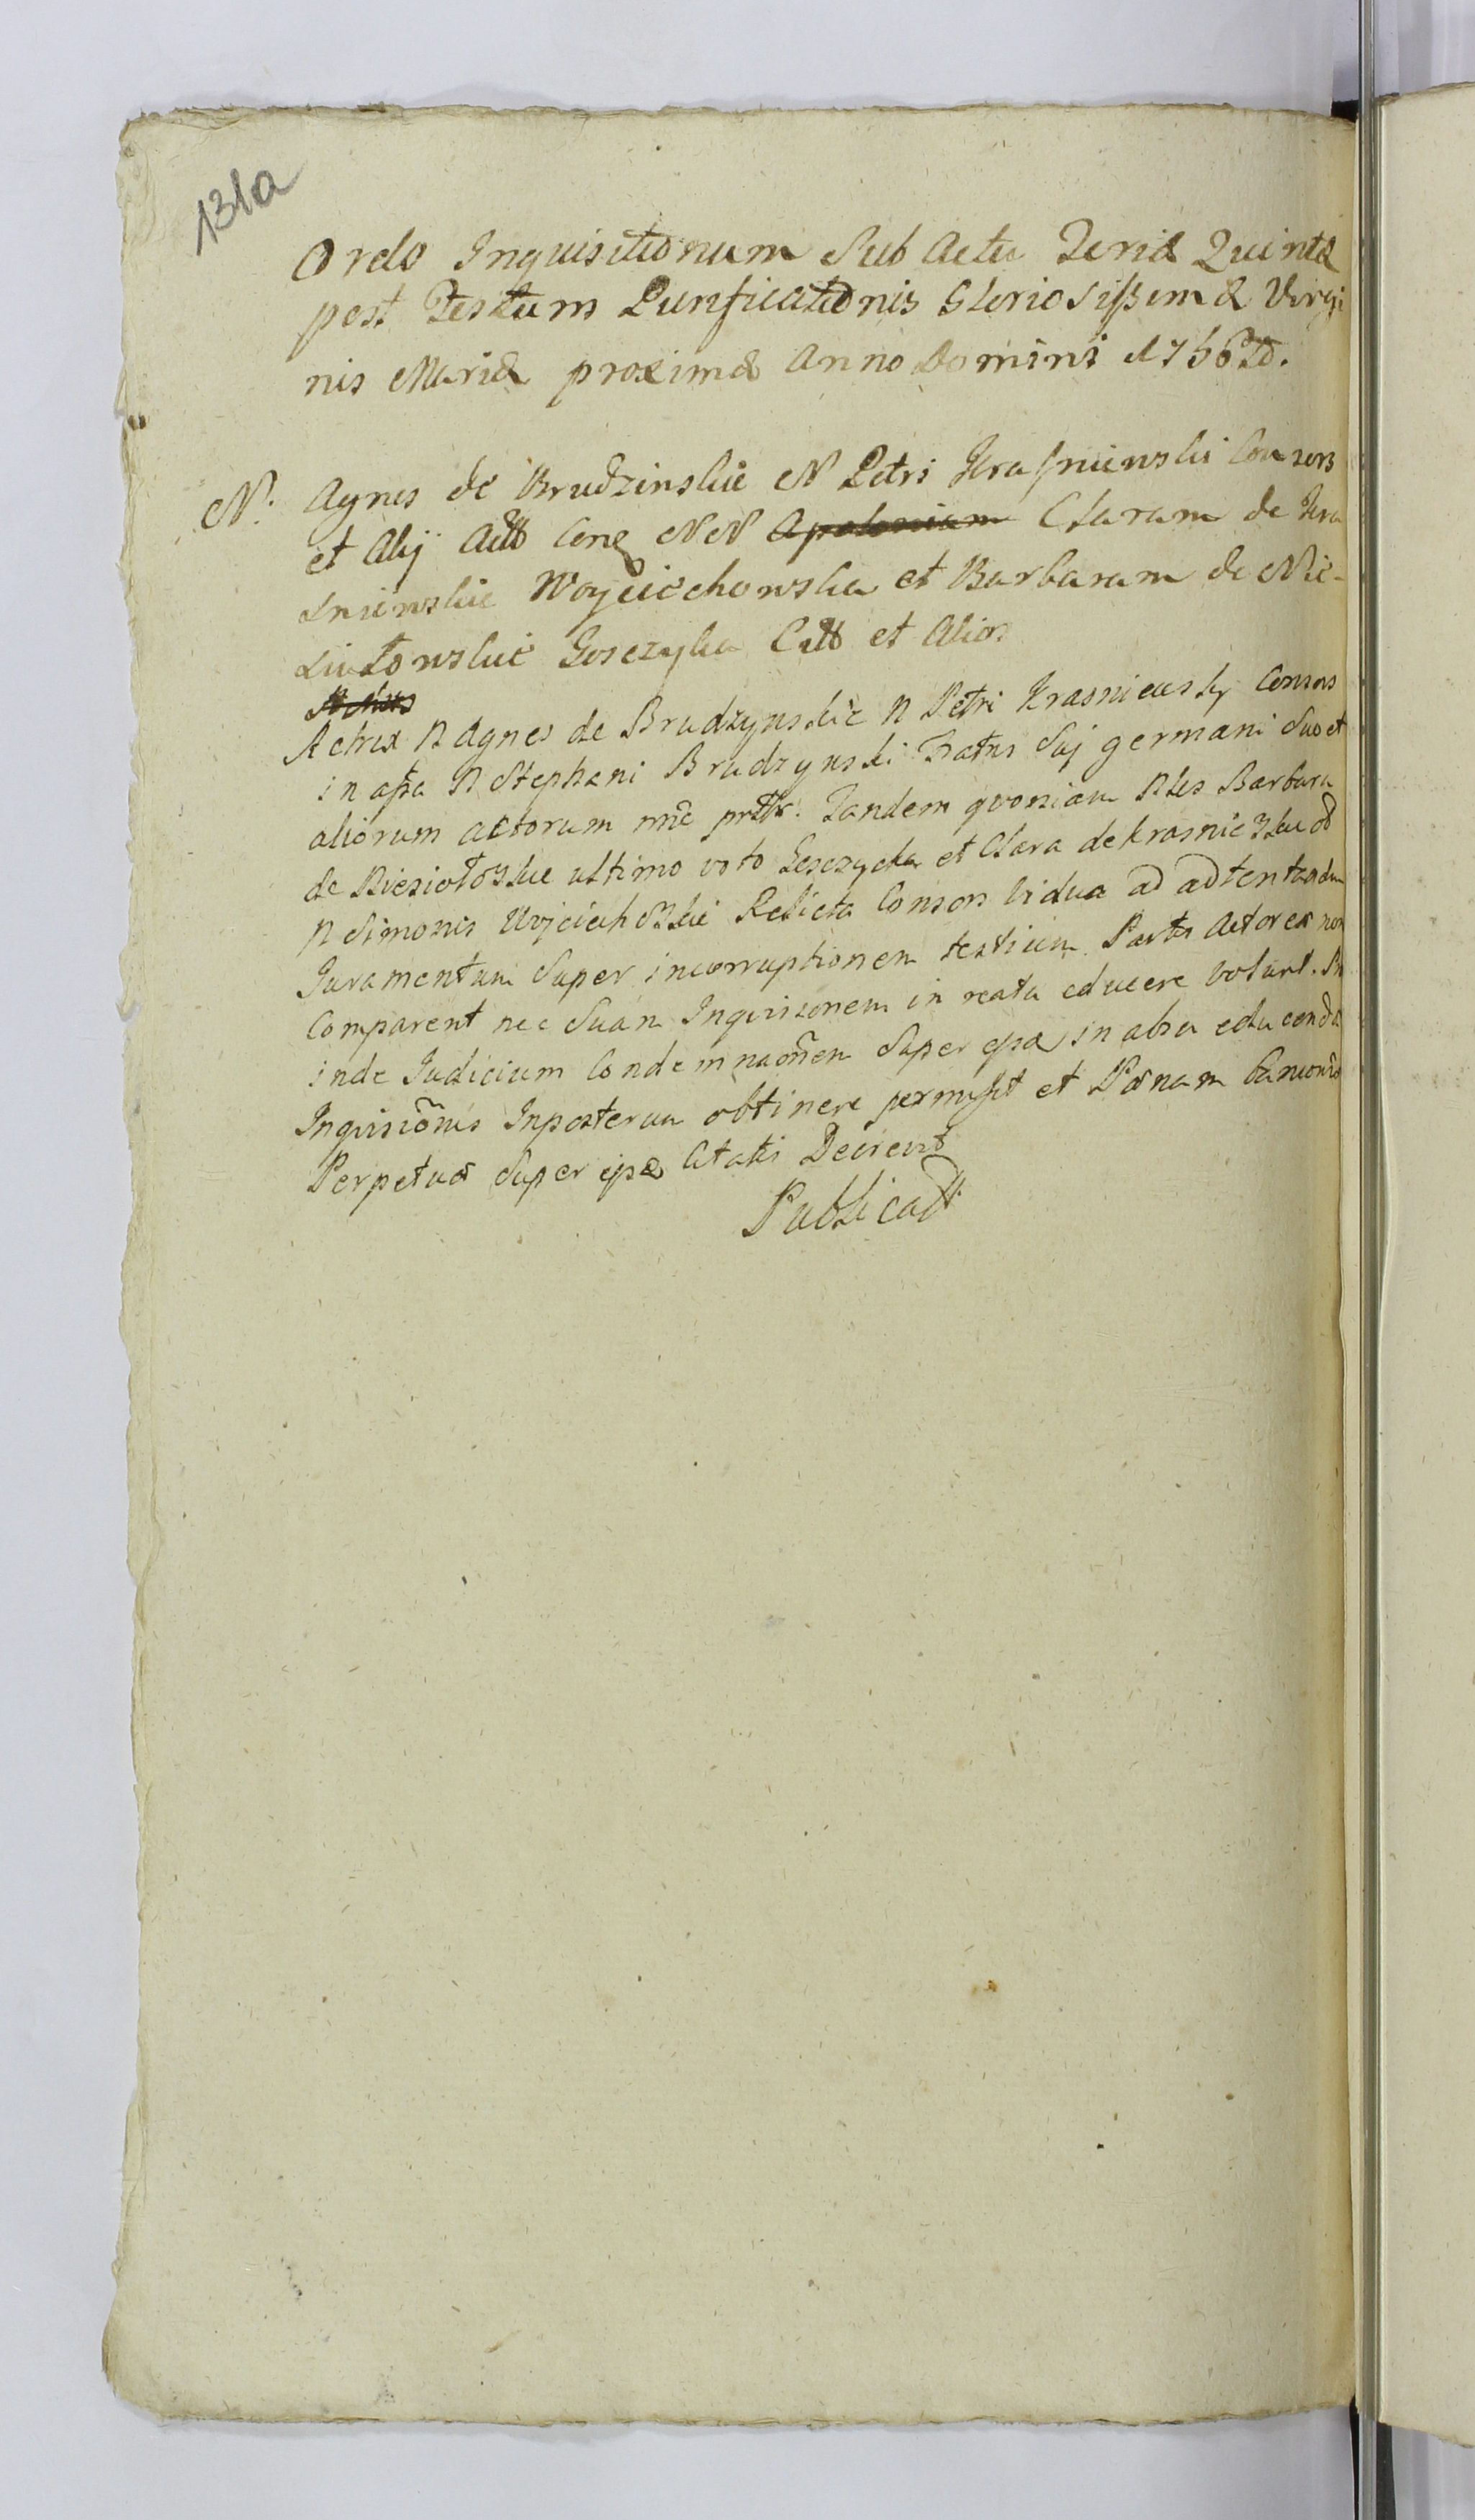 131a
Ordo Inquisitionum Sub Actu Feriæ Quintæ
post Festum Purificationis Gloriosissimæ Virgi
nis Mariæ proximæ Anno Domini 1756to.
N. Agnes de Brudzinskie N Petri Krasniewski Consors
et Alij Actt Cone NN Apoloniam Claram de Kra
sniewskie Woyciechowska et Barbaram de Nie-
siułowskie Goszczyka Citt et Alios
Actrix N Agnes de Brudzynskie N Petri Krasniewsky Consors
in assa N Stephani Brudzynski Fratris Suj germani Suo et
aliorum actorum nne Tandem qvoniam Nles Barbara
de Niesiołoskie ultimo voto Goszczycka et Clara de krasnieskie
N Simonis Woyciechoskie Relicta Consors Vidua ad adtentandum
Juramentum Super incorruptionem testium Partis Actoreæ non
Comparent nec Suam Inqvisionem in reatu educere volunt. Pro
inde Judicium Condemnaõnem Super ipsæ in absa educendæ
Inqvisiõnis Inposterum obtinere permissit et Pænam
Perpetuæ Super ipsæ Citatis Decrevit
Publicatt